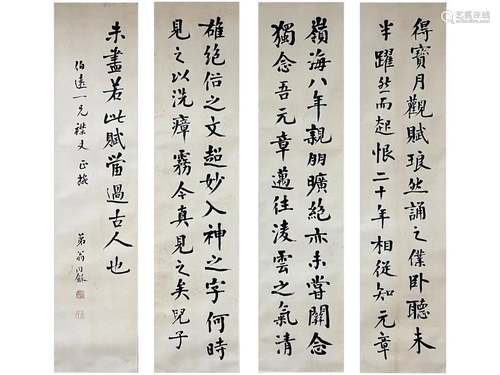 得寶月觀賦琅然誦之僕卧聽未
半躍然而起恨二十年相從知元章
嶺海八年親朋曠絕亦未嘗關念
獨念吾元章邁往凌雲之氣清
雄絕俗之文超妙入神之字何時
見之以洗瘴霧今真見之矣兒子
未盡若此賦當過古人也
伯遠一兄襟丈正
弟翁同龢
艺赢在线